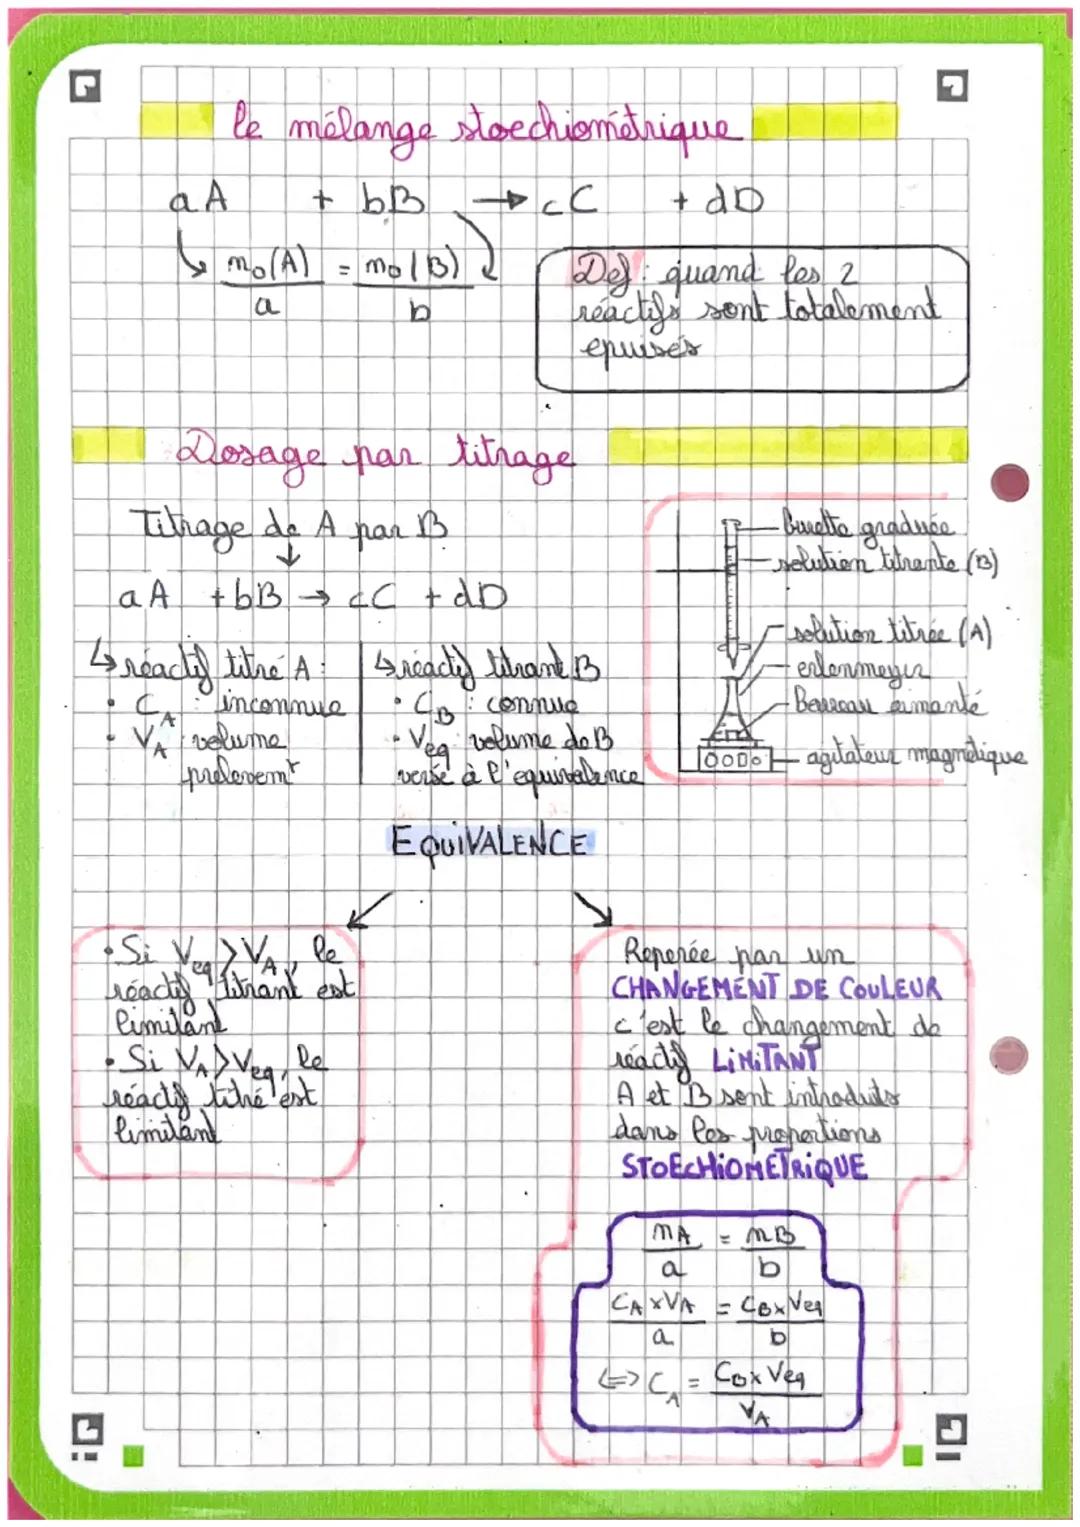 le mélange stoechiométrique
aA + bB → cC + dD
n₀(A)/a = n₀(B)/b
Def : quand les 2
réactifs sont totalement
epuisés
Dosage par titrage
Titrage de A par B
aA + bB → cC + dD
↳ réactif titré A :
• C_A : inconnue
• V_A : volume
prelevemt
↳ réactif titrant B
• C_B : connue
• Veq : volume de B
versé à l'equivalence
burette graduée
solution titrante (B)
solution titrée (A)
erlenmeyer
Barreau aimanté
agitateur magnétique
EQUIVALENCE
• Si Veq > V_A, le
réactif titrant est
limitant
• Si V_A > Veq, le
réactif titré est
limitant
Reperée par un
CHANGEMENT DE COULEUR
c'est le changement de
réactif LIMITANT
A et B sont introduits
dans les proportions
STOECHIOMETRIQUE
nA/a = nB/b
C_A x V_A/a = C_B x Veq/b
<=> C_A = C_B x Veq/V_A